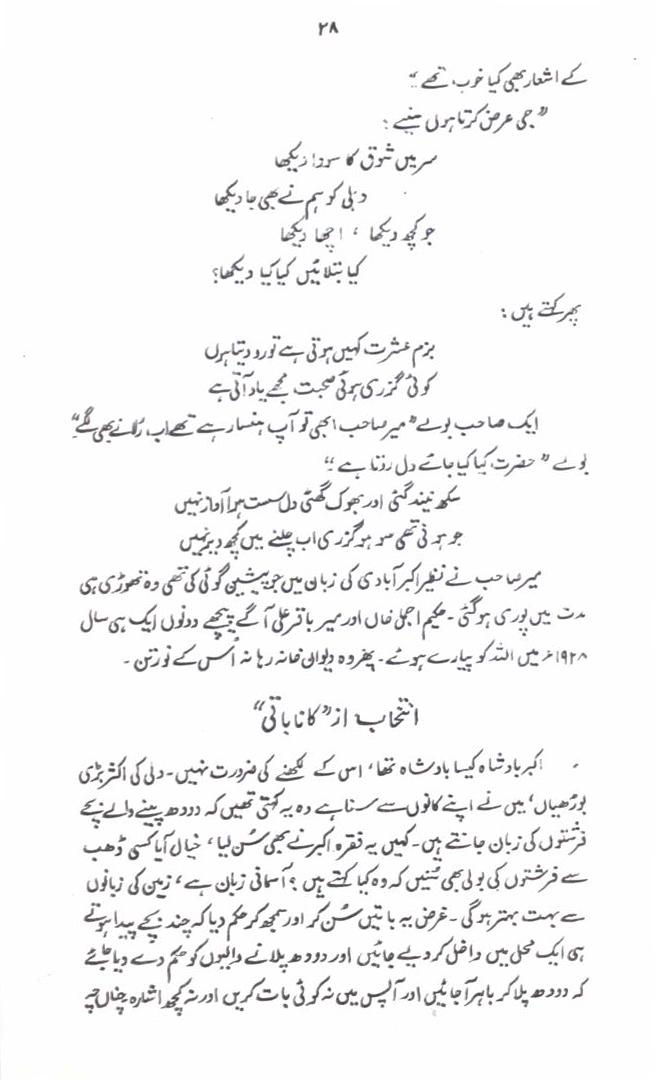 ۲۸
کے اشعار بھی کیا خوب تھے "
"جی عرض کرتا ہوں سنیے :
سر میں شوق کا سودا دیکھا
دہلی کو ہم نے بھی جا دیکھا
جو کچھ دیکھا ، اچھا دیکھا
کیا بتلائیں کیا کیا دیکھا؟
پھر کہتے ہیں :
بزم عشرت کہیں ہوتی ہے تو رو دیتا ہوں
کوئی گزری ہوئی صحبت مجھے یاد آتی ہے
ایک صاحب بولے "میر صاحب ابھی تو آپ ہنسا رہے تھے اب رلانے بھی لگے"۔
بولے "حضرت کیا کیا جائے دل روتا ہے"
سکھ نیند گئی اور بھوک گھٹی دل سست ہوا آواز نہیں
جو ہونی تھی سو ہو گزری اب چلنے میں کچھ دیر نہیں
میر صاحب نے نظیر اکبر آبادی کی زبان میں جو پیشین گوئی کی تھی وہ تھوڑی ہی
مدت میں پوری ہو گئی ۔ حکیم اجمل خاں اور میر باقر علی آگے پیچھے دونوں ایک ہی سال
۱۹۲۸ء میں اللہ کو پیارے ہوئے ۔ پھر وہ دیوان خانہ رہا نہ اُس کے نورتن ۔
انتخاب از "کانا باتی"
اکبر بادشاہ کیسا بادشاہ تھا ، اس کے لکھنے کی ضرورت نہیں ۔ دلی کی اکثر بڑی
بوڑھیاں ، میں نے اپنے کانوں سے سنا ہے وہ یہ کہتی تھیں کہ دودھ پینے والے بچے
فرشتوں کی زبان جانتے ہیں ۔ کہیں یہ فقرہ اکبر نے بھی سُن لیا ، خیال آیا کسی ڈھب
سے فرشتوں کی بولی بھی سُنیں کہ وہ کیا کہتے ہیں ؟ آسمانی زبان ہے ، زمین کی زبانوں
سے بہت بہتر ہوگی ۔ غرض یہ باتیں سُن کر اور سمجھ کر حکم دیا کہ چند بچے پیدا ہوتے
ہی ایک محل میں داخل کر دیے جائیں اور دودھ پلانے والیوں کو حکم دے دیا جائے
کہ دودھ پلا کر باہر آجائیں اور آپس میں نہ کوئی بات کریں اور نہ کچھ اشارہ چناں چہ